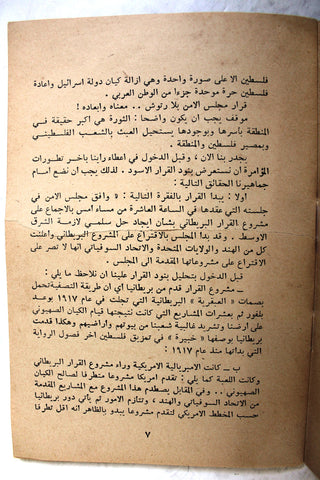 فلسطين الا على صورة واحدة وهي ازالة كيان دولة اسرائيل واعادة
فلسطين حرة موحدة جزءا من الوطن العربي .
قرار مجلس الامن بلا رتوش .. معناه وابعاده !
موقف يجب ان يكون واضحا : الثورة هي اكبر حقيقة في
المنطقة بأسرها وبوجودها يستحيل العبث بالشعب الفلسطيني
وبمصير فلسطين والمنطقة .
يجدر بنا الان ، وقبل الدخول في اعطاء رأينا بآخر تطورات
المؤامرة ان نستعرض بنود القرار الاسود . لذلك يجب ان نضع امام
جماهيرنا الحقائق التالية :
اولا : يبدا القرار بالفقرة التالية : « وافق مجلس الامن في
جلسته التي عقدها في الساعة العاشرة من مساء امس بالاجماع على
مشروع القرار البريطاني بشأن ايجاد حل سلمي لازمة الشرق
الاوسط . وقد بدا المجلس بالاقتراع على المشروع البريطاني واعلنت
كل من الهند والولايات المتحدة والاتحاد السوفياتي انها لا تصر على
الاقتراع على مشروعاتها المقدمة الى المجلس .
قبل الدخول بتحليل بنود القرار علينا ان نلاحظ ما يلي :
– مشروع القرار قدم من بريطانيا اي ان طريقة التصفية تحمل
بصمات « العبقرية » البريطانية التي تجلت في عام ١٩١٧ بوعد
بلفور ثم بعشرات المشاريع التي كانت نتيجتها قيام الكيان الصهيوني
على ارضنا وتشريد غالبية شعبنا من بيوتهم واراضيهم وهكذا قدمت
بريطانيا بوصفها « خبيرة » في تمزيق فلسطين اخر فصول الرواية
التي بدأتها منذ عام ١٩١٧ :
ب – كانت الامبريالية الامريكية وراء مشروع القرار البريطاني
وكانت اللعبة كما يلي : تقدم امريكا مشروعا متطرفا لصالح الكيان
الصهيوني .. وفي المقابل يصطدم هذا المشروع مع المشاريع المقدمة
من الاتحاد السوفياتي والهند ، وتتازم الامور ثم يأتي دور بريطانيا
حسب المخطط الامريكي لتقدم مشروعا يبدو بالظاهر انه اقل تطرفا
٧